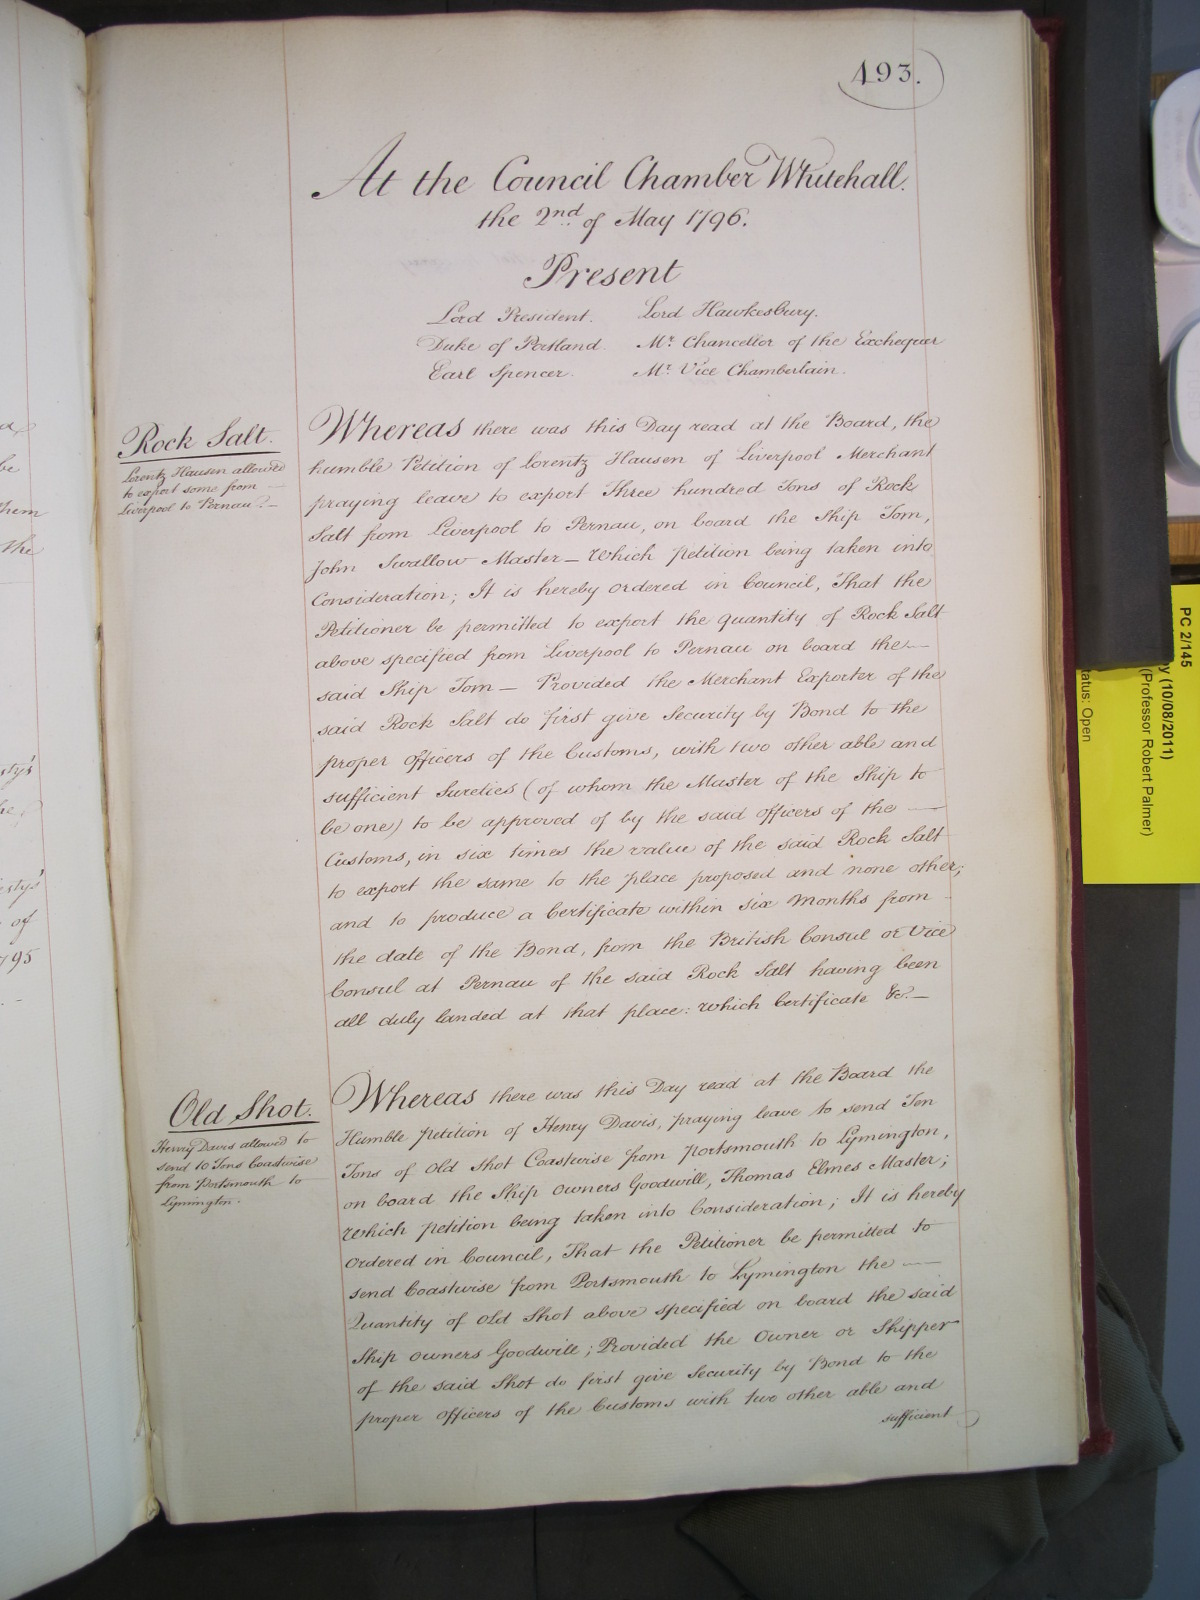 493.
At the Council Chamber Whitehall.
the 2nd. of May 1796.
Present
Lord President. Lord Hawkesbury.
Duke of Portland. Mr. Chancellor of the Exchequer
Earl Spencer. Mr. Vice Chamberlain.
Rock Salt.
Lorentz Hausen allowed
to export some from —
Liverpool to Pernau. —
Whereas there was this Day read at the Board, the
humble Petition of Lorentz Hausen of Liverpool Merchant
praying leave to export Three hundred Tons of Rock
Salt from Liverpool to Pernau, on board the Ship Tom,
John Swallow Master — Which petition being taken into
Consideration; It is hereby ordered in Council, That the
Petitioner be permitted to export the quantity of Rock Salt
above specified from Liverpool to Pernau on board the —
said Ship Tom — Provided the Merchant Exporter of the
said Rock Salt do first give Security by Bond to the
proper officers of the Customs, with two other able and
sufficient Sureties (of whom the Master of the Ship to
be one) to be approved of by the said officers of the —
Customs, in six times the value of the said Rock Salt
to export the same to the place proposed and none other;
and to produce a Certificate within six Months from
the date of the Bond, from the British Consul or Vice
Consul at Pernau of the said Rock Salt having been
all duly landed at that place: which Certificate &c. —
Old Shot.
Henry Davis allowed to
send 10 Tons Coastwise
from Portsmouth to
Lymington.
Whereas there was this Day read at the Board the
Humble petition of Henry Davis, praying leave to send Ten
Tons of Old Shot Coastwise from Portsmouth to Lymington,
on board the Ship Owners Goodwill, Thomas Elmes Master;
Which petition being taken into Consideration; It is hereby
Ordered in Council, That the Petitioner be permitted to
send Coastwise from Portsmouth to Lymington the —
Quantity of Old Shot above specified on board the said
Ship Owners Goodwill; Provided the Owner or Shipper
of the said Shot do first give Security by Bond to the
proper officers of the Customs with two other able and
sufficient
hem
the
be
sty's
esty's
of
95
PC 2/145
(10/08/2011)
(Professor Robert Palmer)
atus: Open